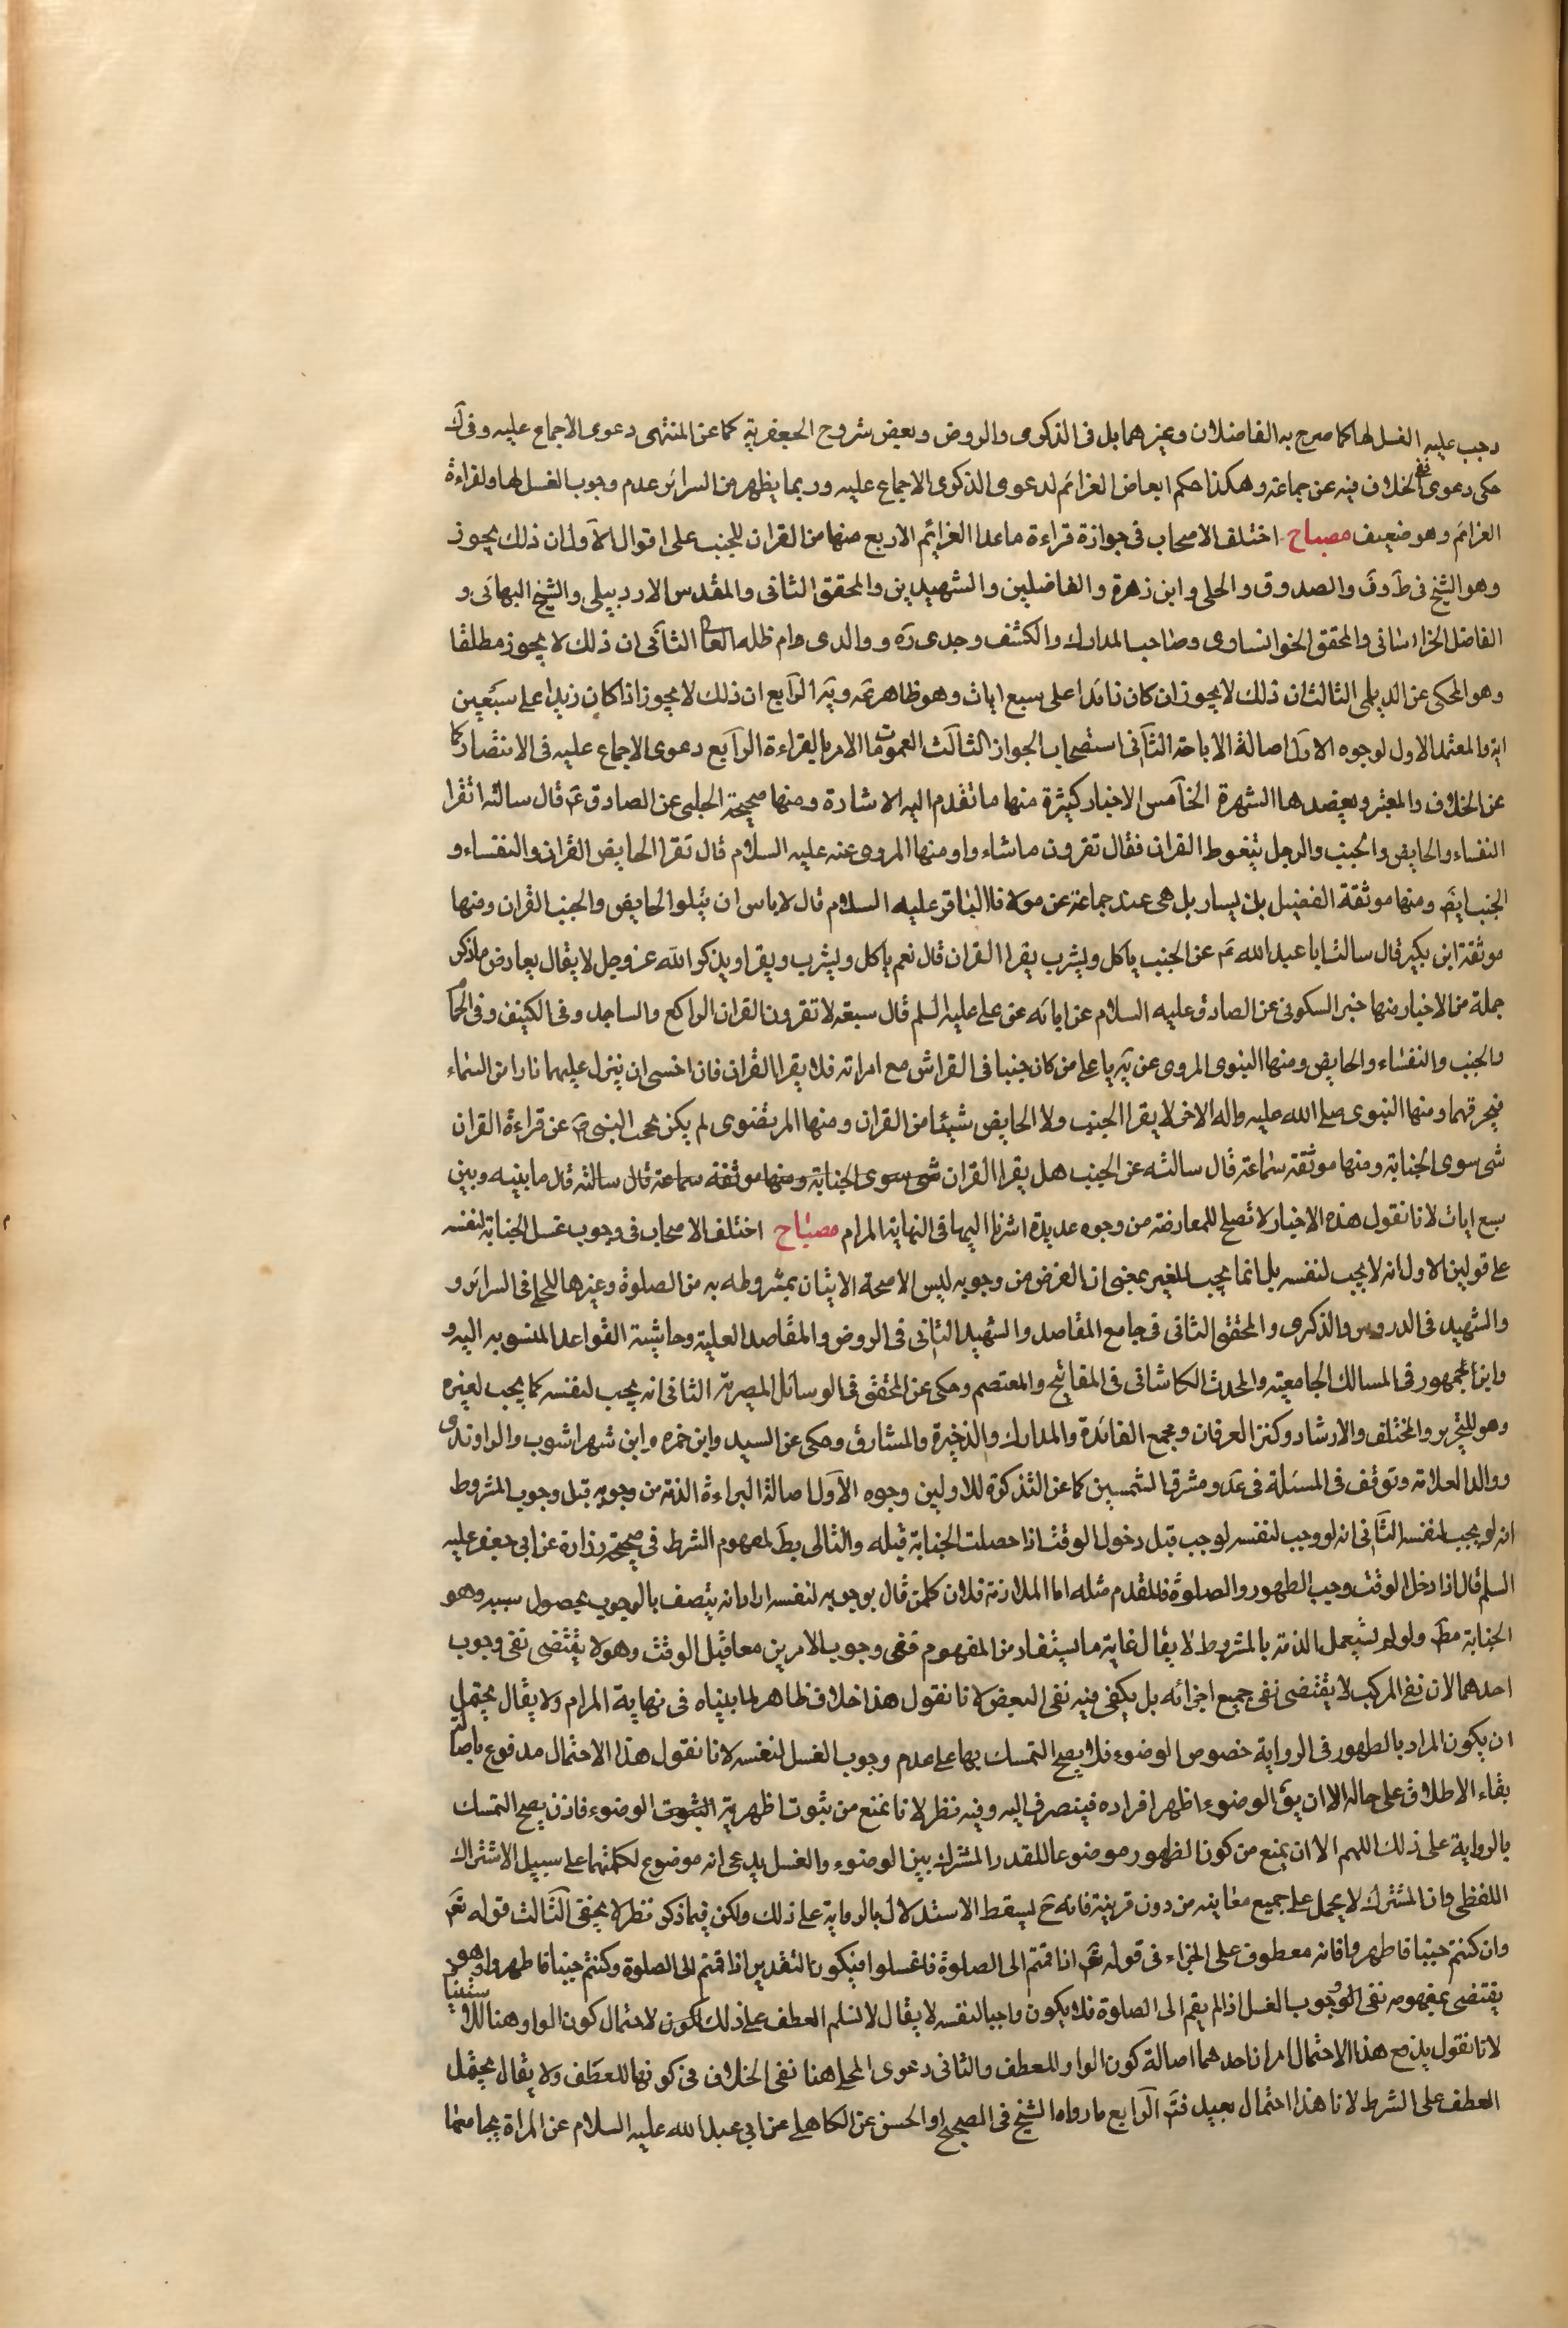 وجب عليه الغسل لها كما صرح به الفاضلان وغيرهما بل فى الذكرى والروض وبعض شروح الجعفرية كما عن المنتهى دعوى الاجماع عليه وفى ك
حكى دعوى نفى الخلاف فيه عن جماعة وهكذا حكم ابعاض الغزائم لدعوى الذكرى الاجماع عليه وربما يظهر من السرائر عدم وجوب الغسل لها ولقراءة
الغزائم وهو ضعيف مصباح اختلف الاصحاب فى جوازة قراءة ماعدا الغزائم الاربع منها من القران للجنب على اقوال الآول ان ذلك يجوز
وهو الشيخ فى ط وف والصدوق والحلى وابن زهرة والفاضلين والشهيدين والمحقق الثانى والمقدس الاردبيلى والشيخ البهائى و
الفاضل الخراسانى والمحقق الخوانساوى وصاحب المدارك والكشف وجدى ره ووالدى دام ظله العا الثآنى ان ذلك لا يجوز مطلقا
وهو المحكى عن الديلمى الثالث ان ذلك لا يجوز ان كان زائدا على سبع ايات وهو ظاهر يه الرآبع ان ذلك لا يجوز اذا كان زيدا على سبعين
اية والمعتمد الاول لوجوه الاول اصالة الاباحة الثآنى استصحاب الجواز الثالث العمومات ما الامر بالقراءة الرآبع دعوى الاجماع عليه فى الانتصار كا
عن الخلاف والمعتبر ويعضدها الشهرة الخآمس الاخبار كثيرة منها ما تقدم اليه الاشارة ومنها صحيحة الحلبى عن الصادق ع قال سالته اتقرا
النفساء والحايض والجنب والرجل يتغوط القران فقال تقرون ما شاءوا ومنها المروى عنه عليه السلام قال تقرا الحايض القران والنفساء و
الجنب ايض ومنها موثقة الفضيل بن يسار بل هى عند جماعة عن مولانا الباقر عليه السلام قال لا باس ان يتلوا الحايض والجنب القران ومنها
موثقة ابن بكير قال سالت ابا عبد الله ع عن الجنب ياكل ويشرب يقرا القران قال نعم ياكل ويشرب ويقرا ويذكر الله عز وجل لا يقال يعارض ما ذكر
جملة من الاخبار منها خبر السكونى عن الصادق عليه السلام عن ابائه عن على عليه السلم قال سبعة لا تقرون القران الراكع والساجد وفى الكنيف وفى الحما
والجنب والنفساء والحايض ومنها النبوى المروى عن يه يا على من كان جنبا فى الفراش مع امراته فلا يقرا القران فان اخسى ان ينزل عليهما نارا من السماء
فيحرقهما ومنها النبوى صلى الله عليه واله الاخر لا يقرا الجنب ولا الحايض شيئا من القران ومنها المرتضوى لم يكن يحجب النبى ص عن قراءة القران
شى سوى الجنابة ومنها موثقة سماعة قال سالته عن الجنب هل يقرا القران شى سوى الجنابة ومنها موثقة سماعة قال سالته قال ما بينه وبين
سبع ايات لانا نقول هذه الاخبار لا تصلح للمعارضة من وجوه عديدة اشرنا اليها فى النهاية المرام مصباح اختلف الاصحاب فى وجوب غسل الجنابة لنفسه
على قولين الاول انه لا يجب لنفسه بل انما يجب للغير بمعنى ان الغرض من وجوبه ليس الا صحة الاتيان بمشروطه به من الصلوة وغيرها للحلى فى السرائر و
والشهيد فى الدروس والذكرى والمحقق الثانى فى جامع المقاصد والشهيد الثانى فى الروض والمقاصد العلية وحاشية القواعد المنسوبه اليه و
وابن الجمهور فى المسالك الجامعيته والمحدث الكاشانى فى المفاتيح والمعتصم وحكى عن المحقق فى الوسائل المصرية الثانى انه يجب لنفسه كما يجب لغيره
وهو للتحرير والمختلف والارشاد وكنز العرفان ومجمع الفائدة والمدارك والذخيرة والمشارق وحكى عن السيد وابن حمزه وابن شهراشوب والراوندى
ووالد العلامة وتوقف فى المسئلة فى عد ومشرق الشمسين كما عن التذكرة للاولين وجوه الآول اصالة البراءة الذمة من وجوبه قبل وجوب المشروط
انه لو يجب لنفسه الثآنى انه لو وجب لنفسه لوجب قبل دخول الوقت اذا حصلت الجنابة قبله والتالى بط لمعهوم الشرط فى صحيحة زرارة عن ابى جعفر عليه
السلم قال اذا دخل الوقت وجب الطهور والصلوة فالمقدم مثله اما الملازمة فلان كلمن قال بوجوبه لنفسه اراد انه يتصف بالوجوب بحصول سببه وهو
الجنابة مط ولو لم يشتعمل الذمة بالمشروط لا يقال غاية ما يستفاد من المفهوم فنفى وجوب الامرين معا قبل الوقت وهو لا يقتضى نفى وجوب
احدهما لان نفى المركب لا يقتضى نفى جميع اجزائه بل يكفى فيه نفى البعض لانا نقول هذا خلاف ظاهر لما بيناه فى نهاية المرام ولا يقال يحتمل
ان يكون المراد بالطهور فى الرواية خصوص الوضوء فلا يصح التمسك بها على عدم وجوب الغسل لنفسه لانا نقول هذا الاحتمال مدفوع باصالة
بقاء الاطلاق على حاله الا ان يق الوضوء اظهر افراده فينصرف اليه وفيه نظر لانا نمنع من ثبوت اظهرية الثبوت الوضوء فاذن يصح التمسك
بالرواية على ذلك اللهم الا ان يمنع من كون الطهور موضوعا للقدر المشترك بين الوضوء والغسل يدعى انه موضوع لكلمنهما على سبيل الاشتراك
اللفظى وان المشترك لا يحمل على جميع معانيه من دون قرينة فانه ح يسقط الاستدلال بالرواية على ذلك ولكن فيما ذكر نظر لا يخفى الثآلث قوله تعم
وان كنتم جنبا فاطهروا فانه معطوف على الجزاء فى قوله تعم اذا قمتم الى الصلوة فاغسلوا فيكون التقدير اذا قمتم الى الصلوة وكنتم جنبا فاطهروا وهو
يقتضى بمفهومه نفى الوجوب الغسل اذا لم يقم الى الصلوة فلا يكون واجبا لنفسه لا يقال لا نسلم العطف على ذلك لكون لاحتمال كون الواو هنا للاستيناف
لانا نقول يدفع هذا الاحتمال امران احدهما اصالة كون الواو للعطف والثانى دعوى المحلى هنا نفى الخلاف فى كونها للعطف ولا يقال يحتمل
العطف على الشرط لانا هذا احتمال بعيد فتم الرآبع ما رواه الشيخ فى الصحيح او الحسن عن الكاهلى عن ابى عبد الله عليه السلام عن المراة يجامعها